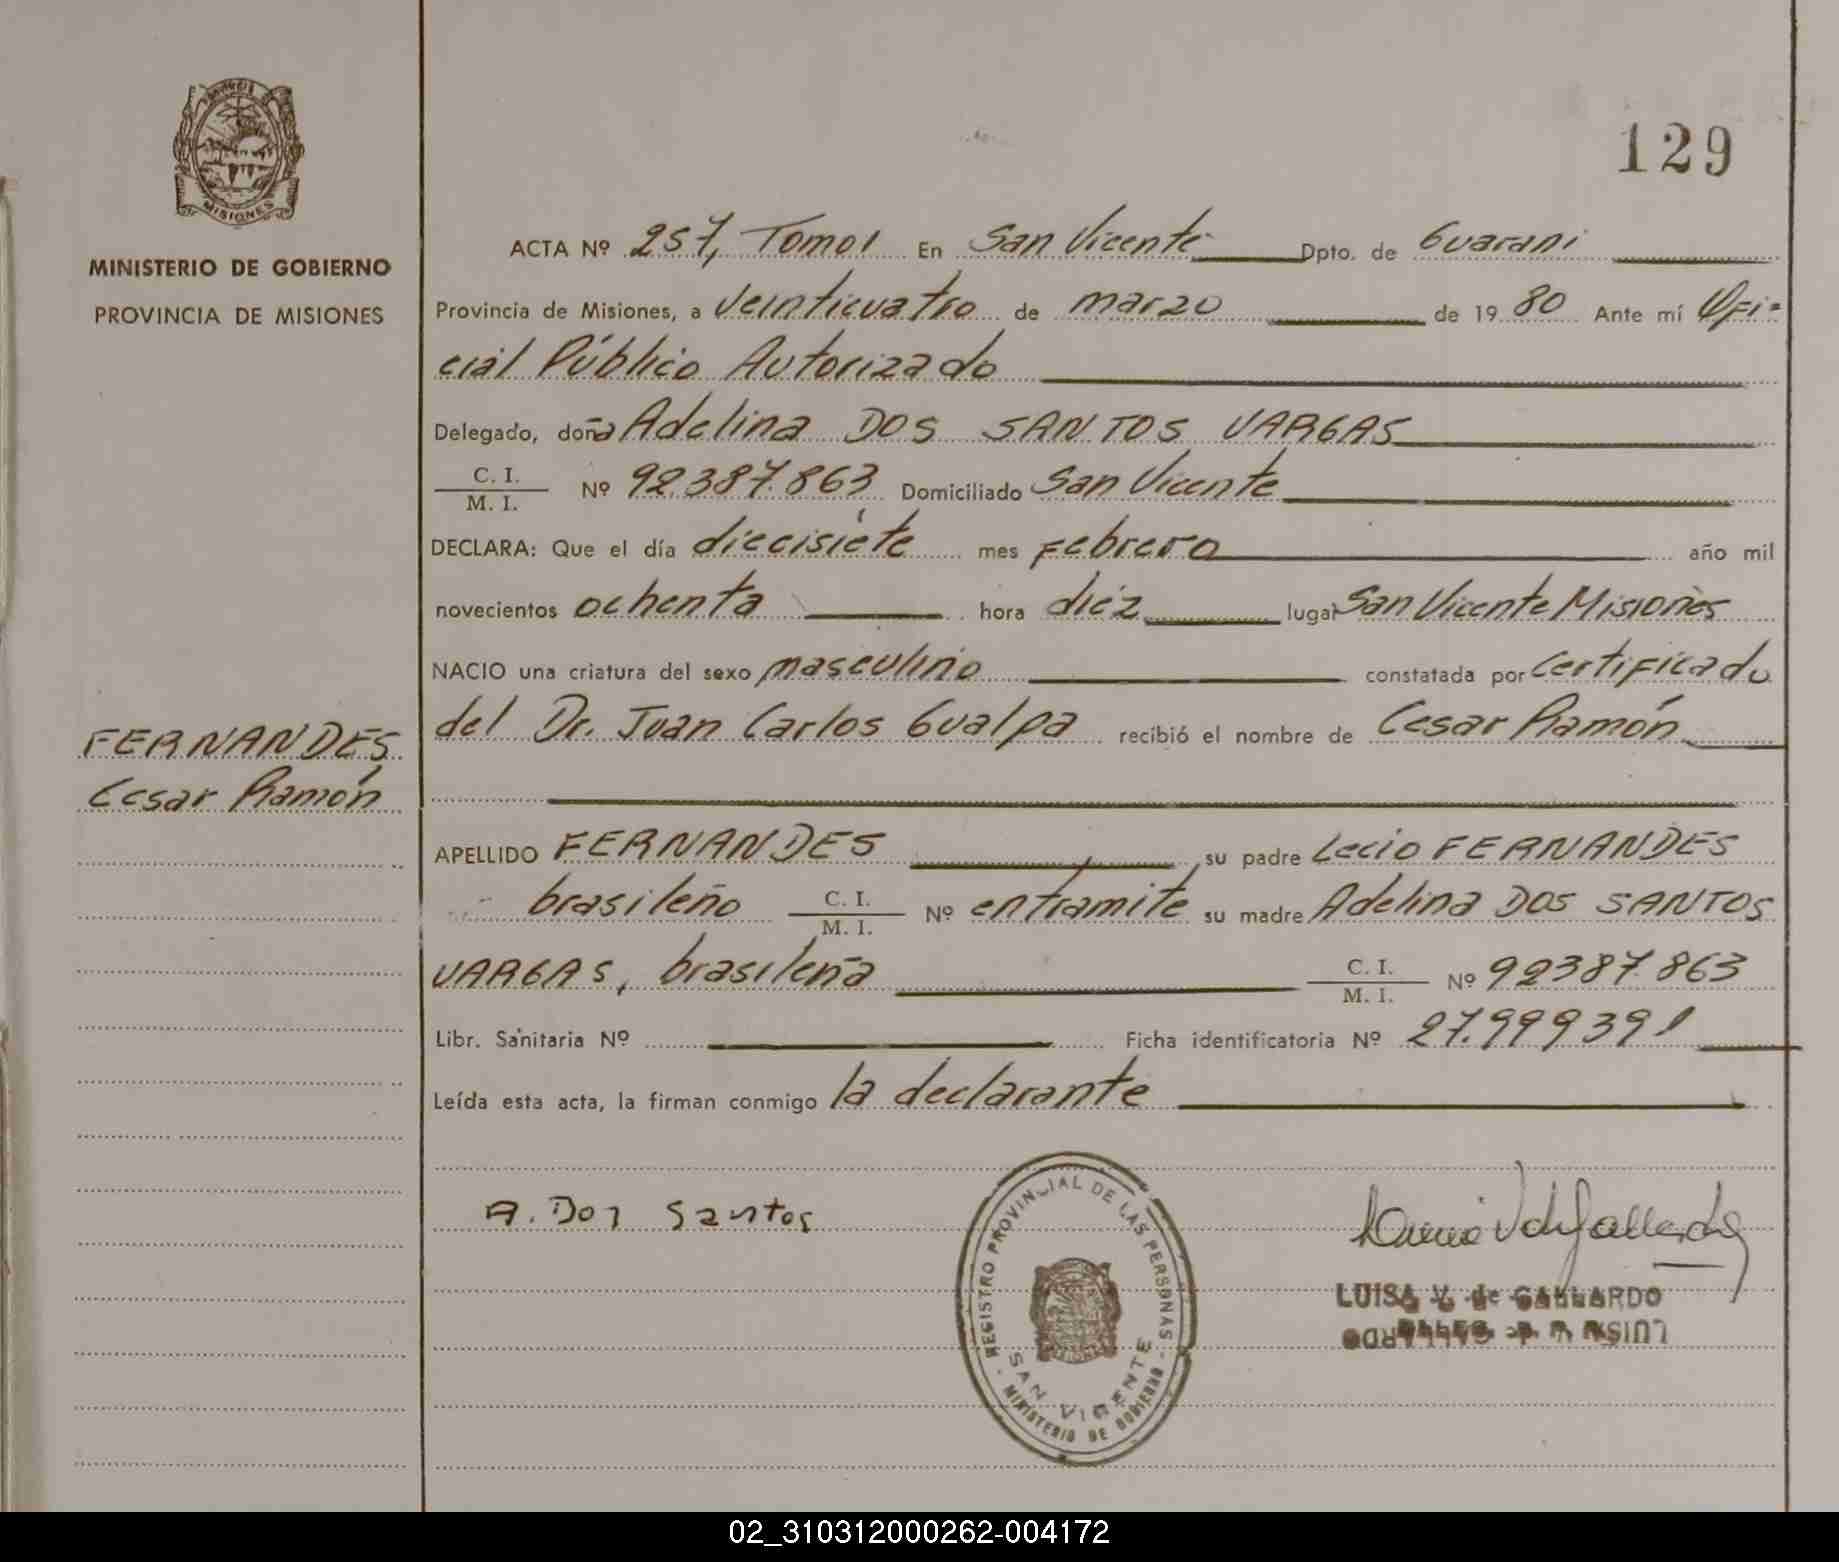 129
MISIONES
MINISTERIO DE GOBIERNO
PROVINCIA DE MISIONES
FERNANDES
Cesar Ramón
ACTA Nº 257, Tomo I En San Vicente Dpto. de Guarani
Provincia de Misiones, a veinticuatro de marzo de 1980 Ante mí Ofi-
cial Público Autorizado
Delegado, doña Adelina DOS SANTOS VARGAS
C. I.
M. I. Nº 92.387.863 Domiciliado San Vicente
DECLARA: Que el día diecisiete mes Febrero año mil
novecientos ochenta hora diéz lugar San Vicente Misiones
NACIO una criatura del sexo masculino constatada por certificado
del Dr. Juan Carlos Gualpa recibió el nombre de Cesar Ramón
APELLIDO FERNANDES su padre Lecio FERNANDES
brasileño C. I.
M. I. Nº en tramite su madre Adelina DOS SANTOS
VARGAS, brasileña C. I.
M. I. Nº 92387.863
Libr. Sanitaria Nº Ficha identificatoria Nº 27.999391
Leída esta acta, la firman conmigo la declarante
A. Dos Santos
REGISTRO PROVINCIAL DE LAS PERSONAS
SAN VICENTE
MINISTERIO DE GOBIERNO
LUISA V. de GALLARDO
LUISA V. de GALLARDO
02_310312000262-004172